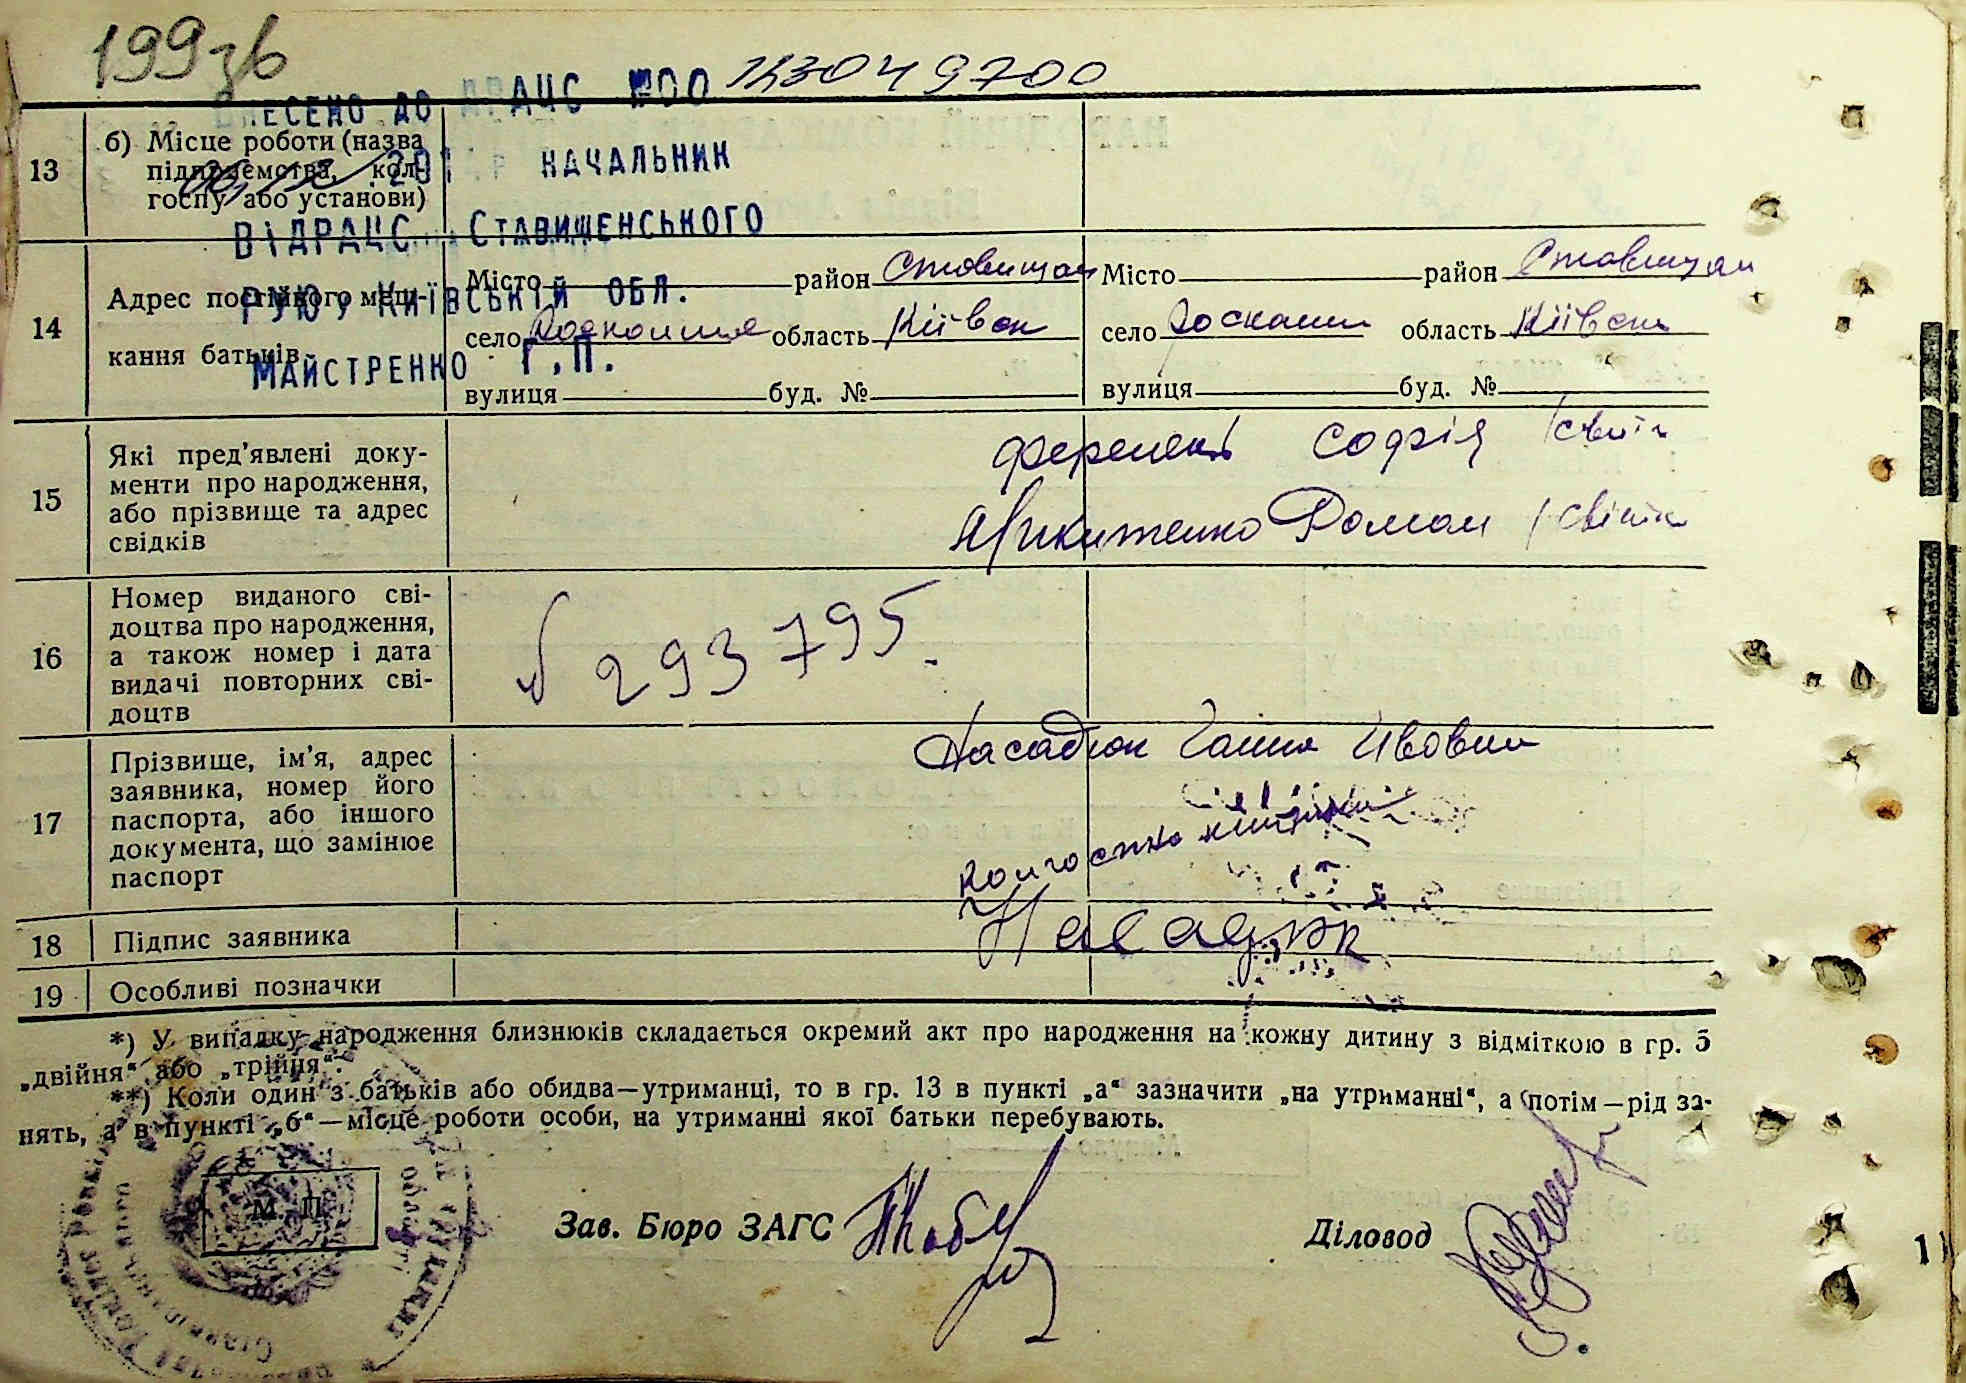 199зв
ВНЕСЕНО ДО ДРАЦС №00 123049700
13
б) Місце роботи (назва
підприємства, кол-
госпу або установи)
201 р НАЧАЛЬНИК
ВІДРАЦС СТАВИЩЕНСЬКОГО
РУЮ У КИЇВСЬКІЙ ОБЛ.
МАЙСТРЕНКО Г.П.
14
Адрес постійного меш-
кання батьків
Місто район Ставищан
село область Київськ
вулиця буд. №
Місто район Ставищан
село Роскошн область Київськ
вулиця буд. №
15
Які пред'явлені доку-
менти про народження,
або прізвище та адрес
свідків
Ференець Софія
Микитенко Роман
16
Номер виданого сві-
доцтва про народження,
а також номер і дата
видачі повторних сві-
доцтв
№ 293795.
17
Прізвище, ім'я, адрес
заявника, номер його
паспорта, або іншого
документа, що замінює
паспорт
Насадюк Ганна
18 Підпис заявника
Насадюк
19 Особливі позначки
*) У випадку народження близнюків складається окремий акт про народження на кожну дитину з відміткою в гр. 5
„двійня“ або „трійня“.
**) Коли один з батьків або обидва—утриманці, то в гр. 13 в пункті „а“ зазначити „на утриманні“, а потім—рід за-
нять, а в пункті „б“—місце роботи особи, на утриманні якої батьки перебувають.
М. П.
Зав. Бюро ЗАГС
Діловод